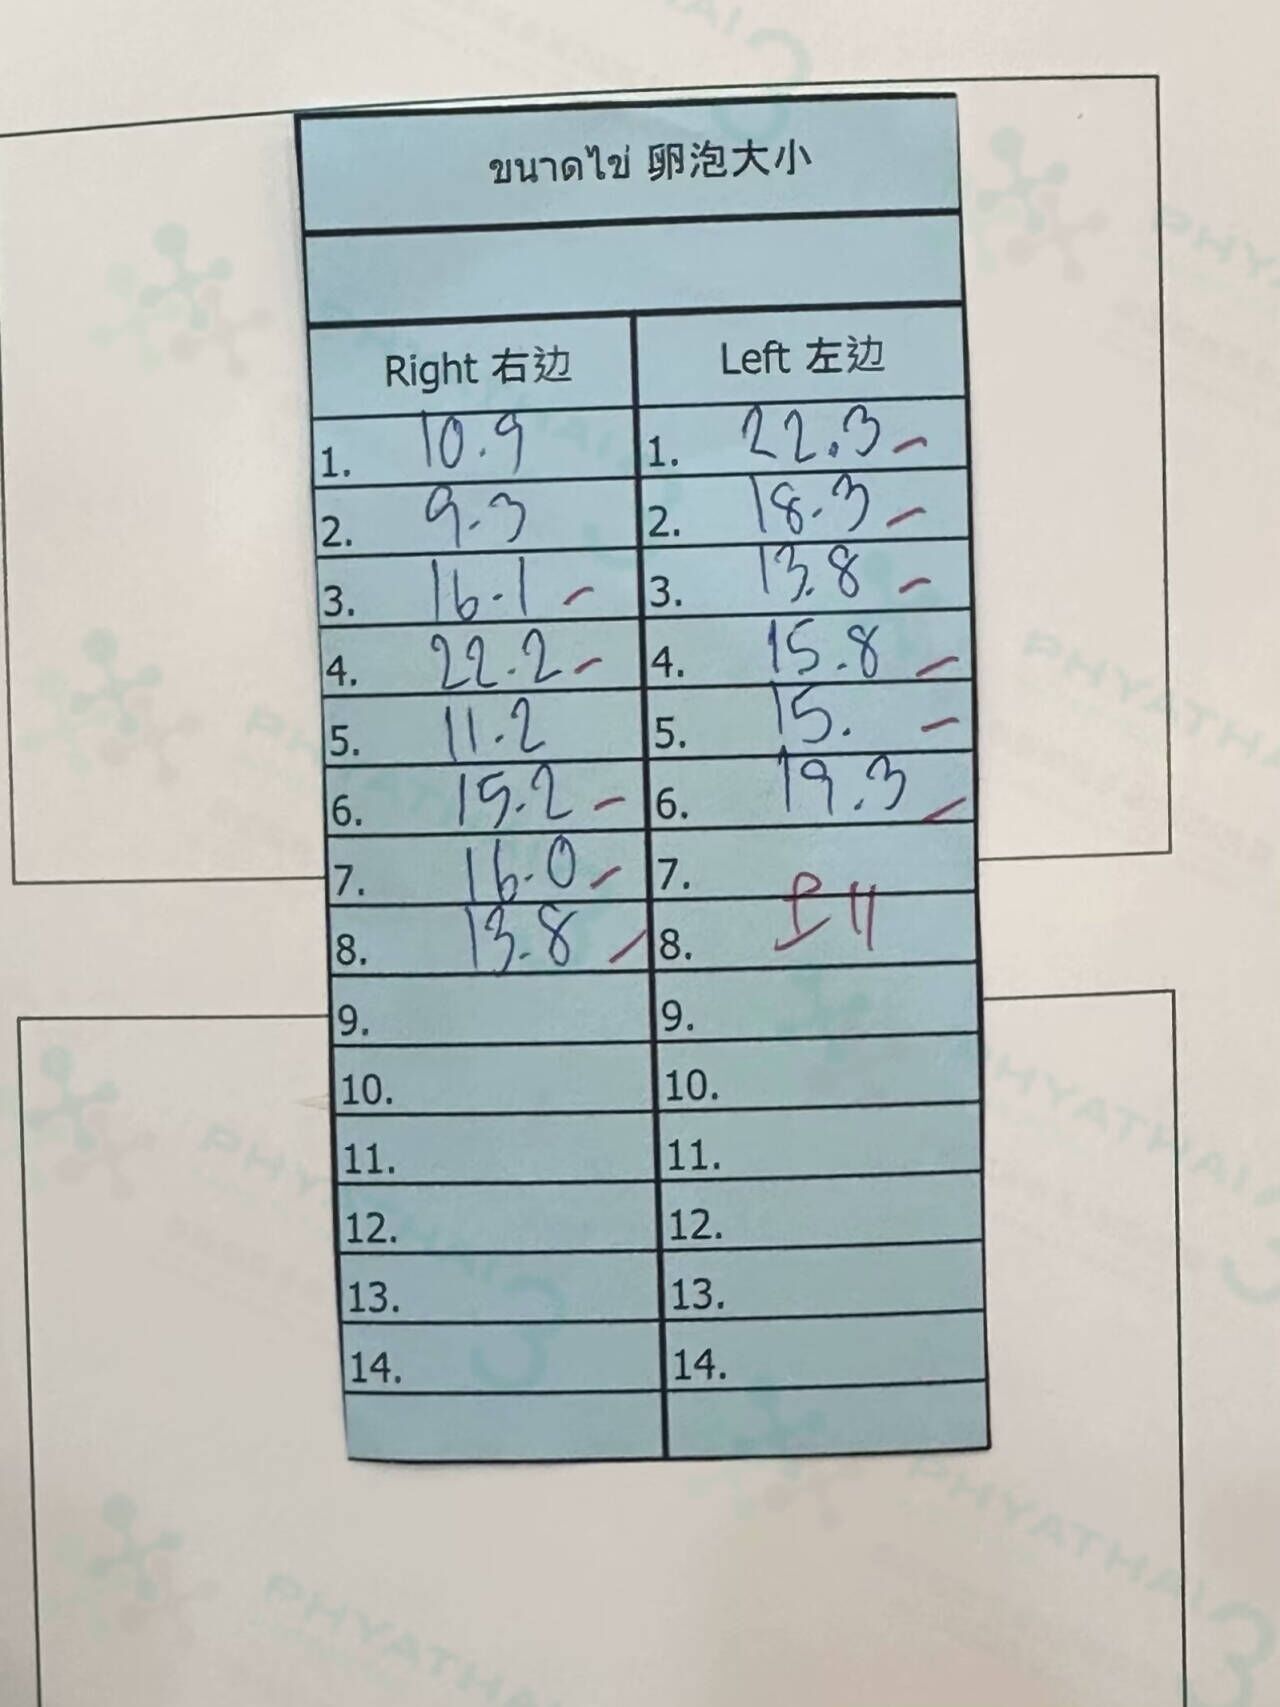 ขนาดไข่ 卵泡大小
Right 右边 Left 左边
1. 10.9 1. 22.3
2. 9.3 2. 18.3
3. 16.1 3. 13.8
4. 22.2 4. 15.8
5. 11.2 5. 15.
6. 15.2 6. 19.3
7. 16.0 7.
8. 13.8 8.
9. 9.
10. 10.
11. 11.
12. 12.
13. 13.
14. 14.